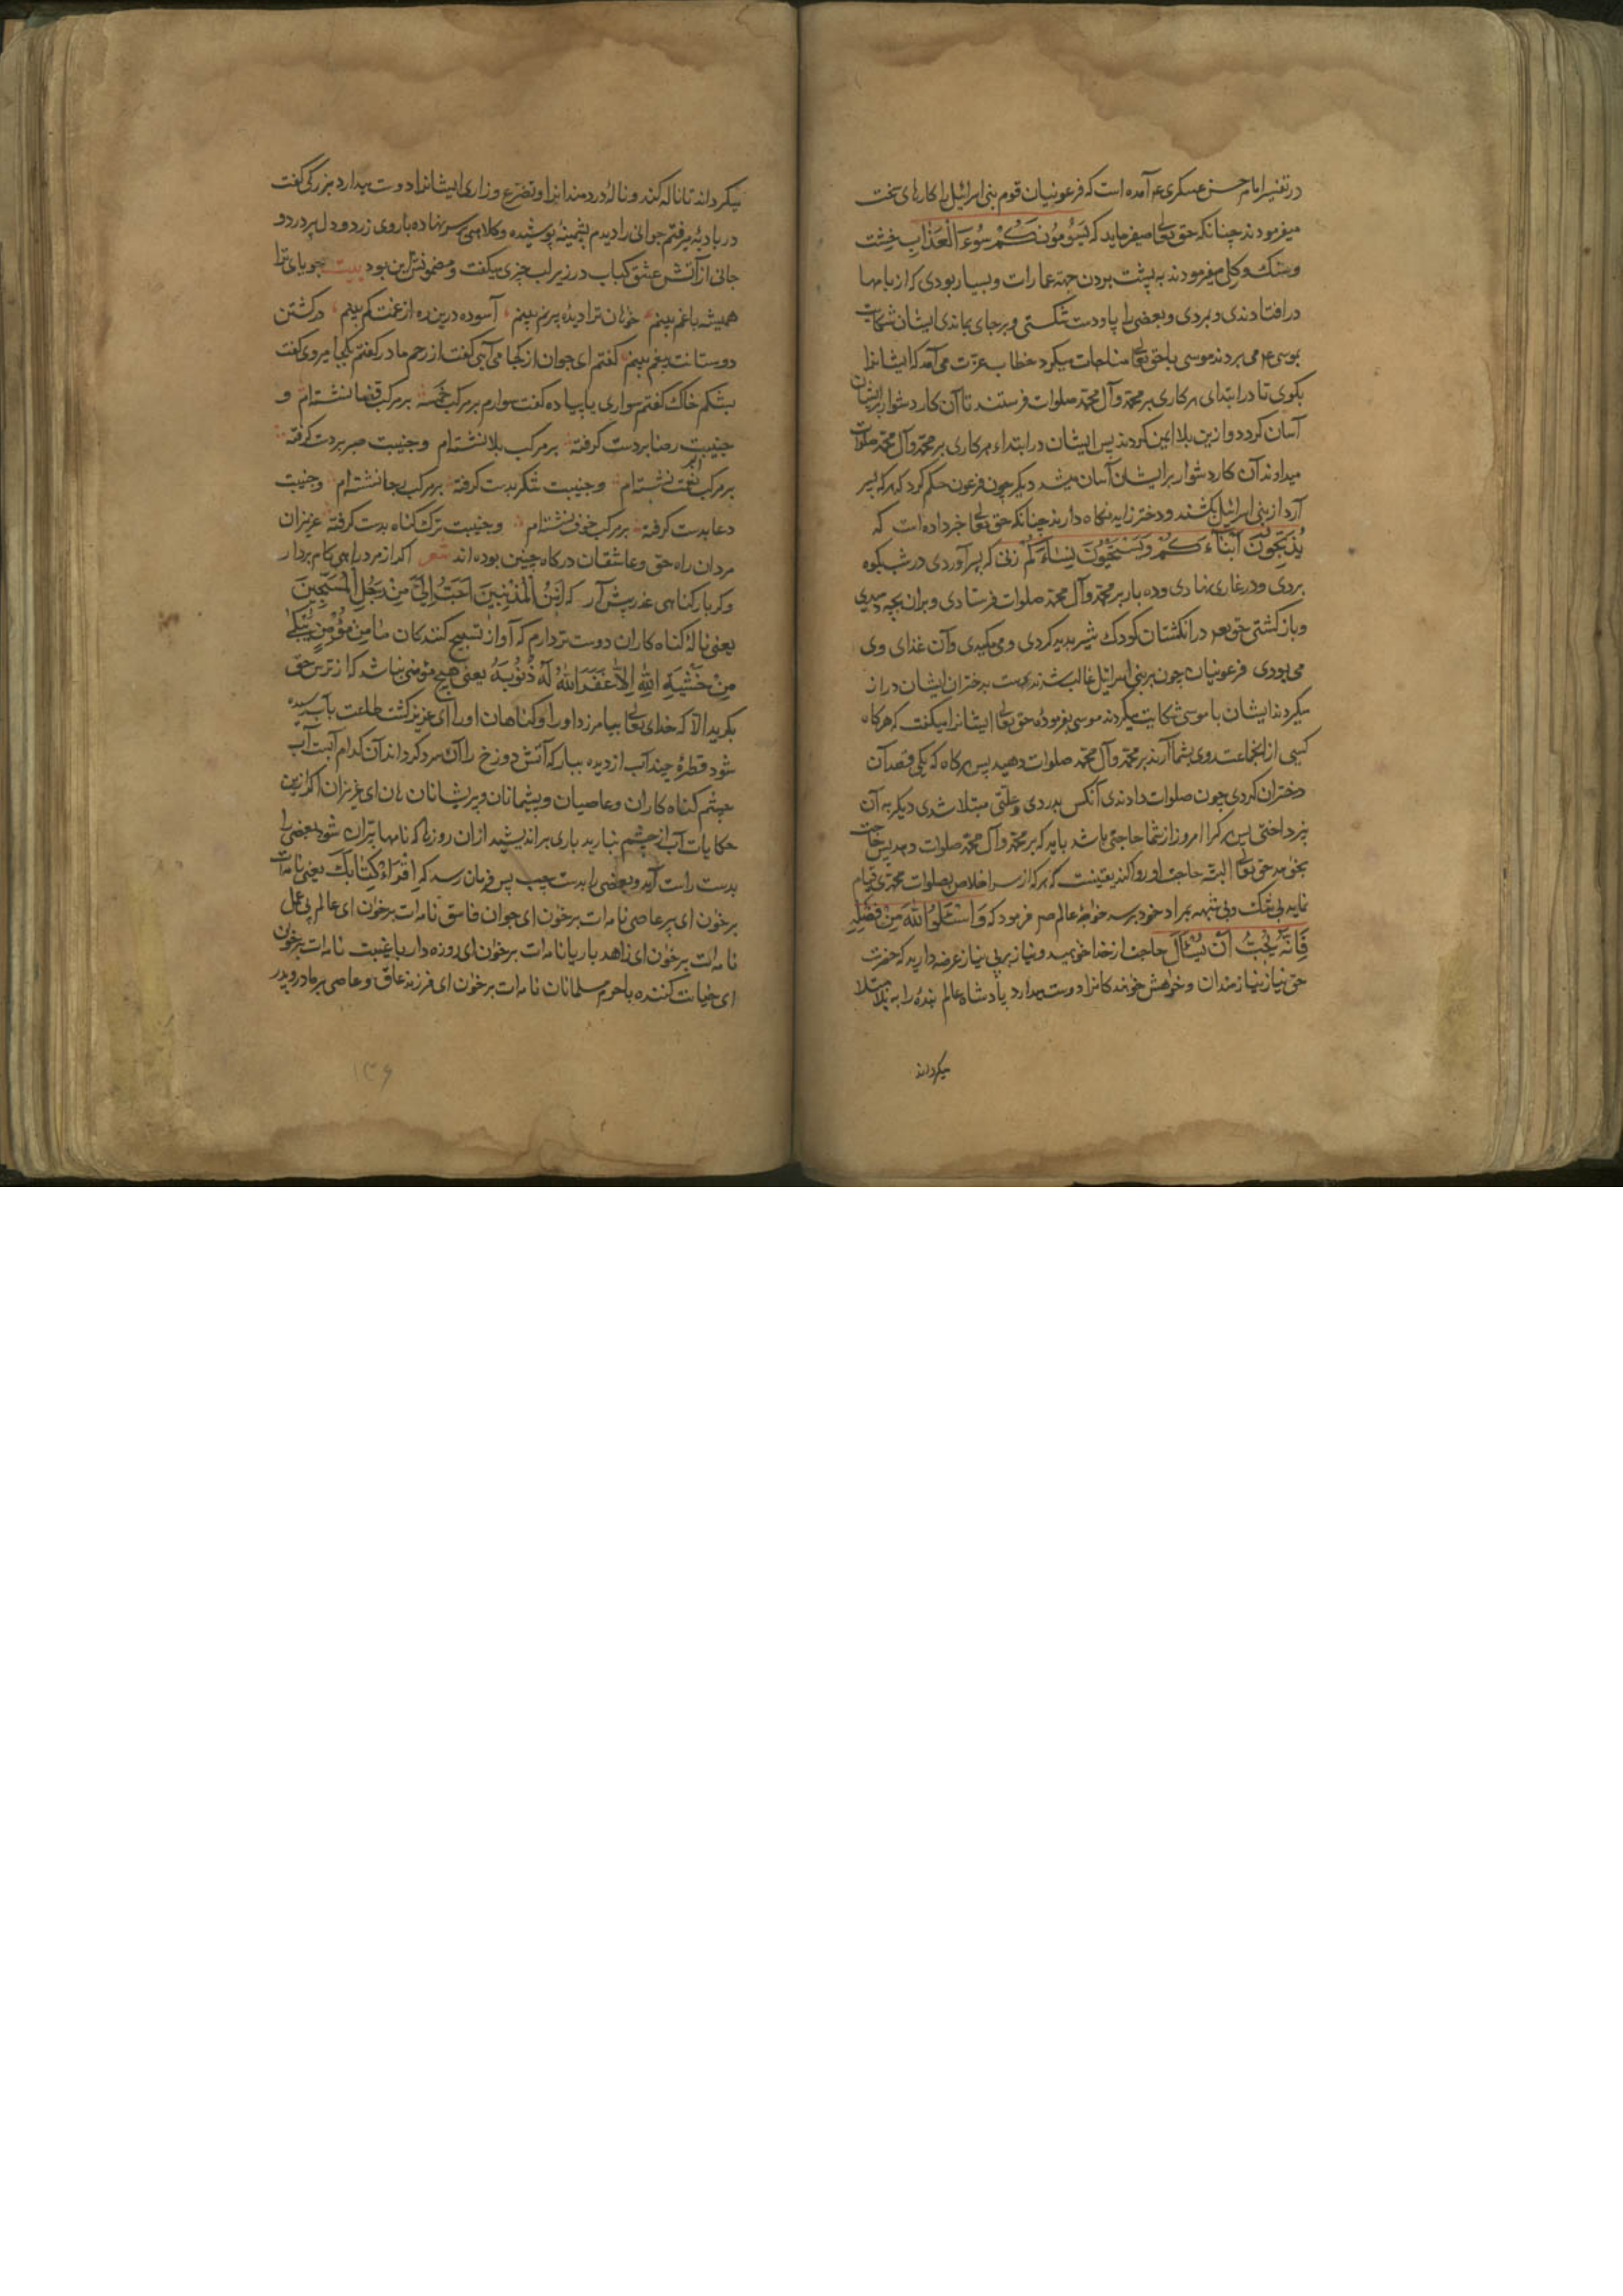 در تفسیر امام حسن عسکری ع آمده است که فرعونیان قوم بنی اسرائیل را کارهای سخت
میفرمودند چنانکه حق تعالی میفرماید که یَسُومُونَکُمْ سُوءَ الْعَذَابِ خشت
و سنک و کل میفرمودند به پشت بردن جهة عمارات و بسیار بودی که از بامها
در افتادندی و بمردی و بعضی را پا و دست شکستی و بر جای بماندی ایشان شکایت
بموسی ع می بردند موسی با حق تعالی مناجات میکرد خطاب عزت می آمد که ایشانرا
بکوی تا در ابتدای هر کاری بر محمد و آل محمد صلوات فرستند تا آن کار دشوار بر ایشان
آسان کردد و ازین بلا ایمن کردند پس ایشان در ابتداء هر کاری بر محمد و آل محمد صلوات
میدادند آن کار دشوار بر ایشان آسان میشد دیکر چون فرعون حکم کرد که هر که پسر
آرد از بنی اسرائیل بکشند و دختر زاید نکاه دارند چنانکه حق تعالی خبر داده است که
یُذَبِّحُونَ اَبْنَاءَکُمْ وَیَسْتَحْیُونَ نِسَاءَکُمْ زنی که پسر آوردی در شب بکوه
بردی و در غاری نهادی و ده بار بر محمد و آل محمد صلوات فرستادی و بران بچه دمیدی
و باز کشتی حق تعه در انکشتان کودک شیر پدید کردی و می مکیدی و آن غذای وی
می بودی فرعونیان چون بر بنی اسرائیل غالب شدند دست بدختران ایشان دراز
میکردند ایشان با موسی شکایت میکردند موسی بفرموده حق تعالی ایشانرا میکفت که هر کاه
کسی از انجماعت روی بشما آرند بر محمد و آل محمد صلوات دهید پس هر کاه که یکی قصد آن
دختران کردی چون صلوات دادندی آنکس بدردی و علتی مبتلا شدی دیکر به آن
نپرداختی پس هر کرا امروز از شما حاجتی باشد باید که بر محمد و آل محمد صلوات دهد پس حاجت
بخواهد حق تعالی البته حاجت او روا کند یقینست که هر که از سر اخلاص بصلوات محمدی قیام
نماید بی شک و بی شبهه بمراد خود برسد خواجه عالم ص فرمود که وَاسْئَلُوا اللهَ مِنْ فَضْلِهِ
فَاِنَّهُ یُحِبُّ اَنْ یُسْئَلَ حاجت از خدا خواهید و نیاز بر بی نیاز عرضه دارید که حضرت
حق نیاز نیازمندان و خواهش خواهندکانرا دوست میدارد پادشاه عالم بنده را به بلا مبتلا
میکرداند
میکرداند تا ناله کند و نالهٔ دردمندانرا و تضرع و زاری ایشانرا دوست میدارد بزرکی کفت
در بادیه میرفتم جوانی را دیدم پشمینهٔ پوشیده و کلاهی بر سر نهاده با روی زرد و دل پر درد و
جانی از آتش عشق کباب در زیر لب چیزی میکفت و مضمونش این بود بیت جویای ترا
همیشه با غم بینم خواهان ترا دیده پر نم بینم آسوده درین ره از غمت کم بینم در کشتن
دوستانت بیغم بینم کفتم ای جوان از کجا می آیی کفت از رحم مادر کفتم بکجا میروی کفت
بشکم خاک کفتم سواری یا پیاده کفت سوارم بر مرکب خمسه بر مرکب قضا نشسته ام و
جنیبت رضا بر دست کرفته بر مرکب بلا نشسته ام و جنیبت صبر بر دست کرفته
بر مرکب نعمت نشسته ام و جنیبت شکر بدست کرفته بر مرکب رجا نشسته ام و جنیبت
دعا بدست کرفته بر مرکب خوف نشسته ام و جنیبت ترک کناه بدست کرفته عزیزان
مردان راه حق و عاشقان درکاه چنین بوده اند شعر اکر از مرد راهی کام بردار
و کر بار کناهی عذر پیش آر که اَنِینُ الْمُذْنِبِینَ اَحَبُّ اِلَیَّ مِنْ زَجَلِ الْمُسَبِّحِینَ
یعنی نالهٔ کناه کاران دوست تر دارم که آواز تسبیح کنندکان مَا مِنْ مُؤْمِنٍ یَبْکِی
مِنْ خَشْیَةِ اللهِ اِلَّا غَفَرَ اللهُ لَهُ ذُنُوبَهُ یعنی هیچ مؤمنی نباشد که از ترس حق
بکرید الا که خدای تعالی بیامرزد او را و کناهان او را ای عزیز کشت طاعت بآب دیده
شود قطرهٔ چند آب از دیده ببار که آتش دوزخ را آن سرد کرداند آن کدام آبست آب
چشم کناه کاران و عاصیان و پشیمانان و پریشانان هان ای عزیزان اکر ازین
حکایات آب از چشم نبارید باری براندیشید ازان روزی که نامها پران شود بعضی را
بدست راست آید و بعضی را بدست چپ پس فرمان رسد که اِقْرَاْ کِتَابَکَ یعنی نامه ات
برخوان ای پیر عاصی نامه ات برخوان ای جوان فاسق نامه ات برخوان ای عالم بی عمل
نامه ات برخوان ای زاهد با ریا نامه ات برخوان ای روزه دار با غیبت نامه ات برخوان
ای خیانت کننده با حرم مسلمانان نامه ات برخوان ای فرزند عاق و عاصی بر مادر و پدر
۱۳۶